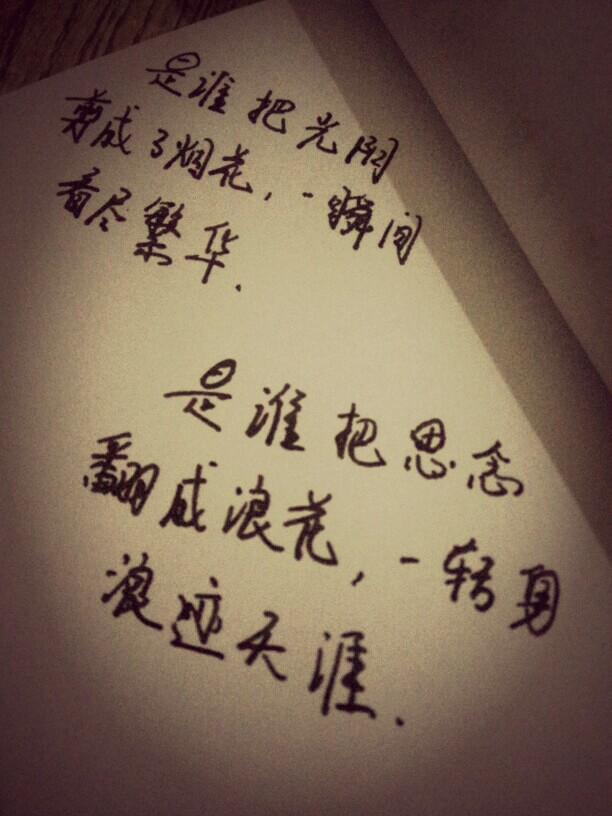 是谁把光阴
剪成了烟花，一瞬间
看尽繁华.
是谁把思念
翻成浪花，一转身
浪迹天涯.